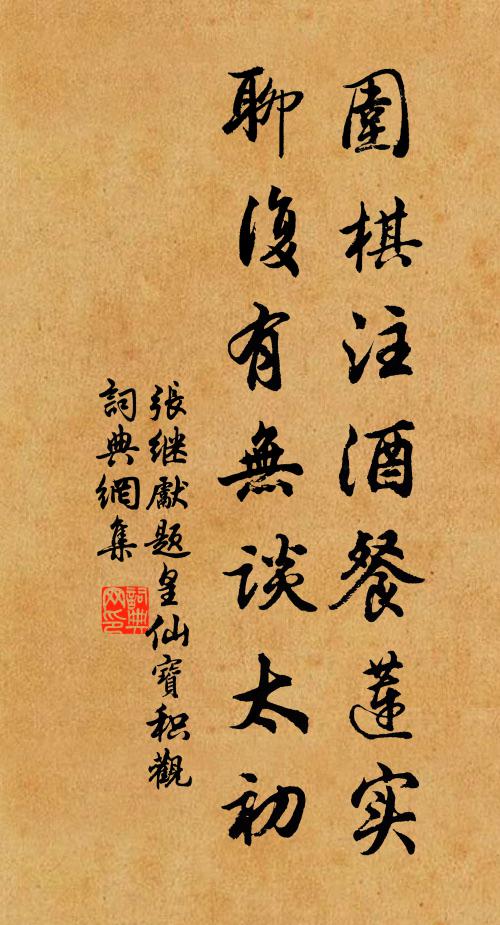 圍棋注酒餐蓮实
聊復有無談太初
張继獻題皇仙寶积觀
詞典網集
詞典网印